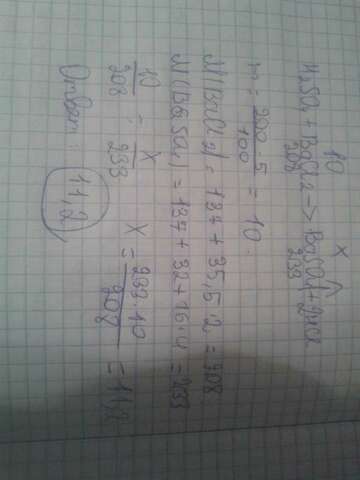 10 X
H₂SO₄ + BaCl₂ → BaSO₄ + 2HCl
208 233
m = 200·5/100 = 10
M(BaCl₂) = 137 + 35,5·2 = 208
M(BaSO₄) = 137 + 32 + 16·4 = 233
10/208 = X/233 X = 233·10/208 = 11,2
Ответ: 11,2